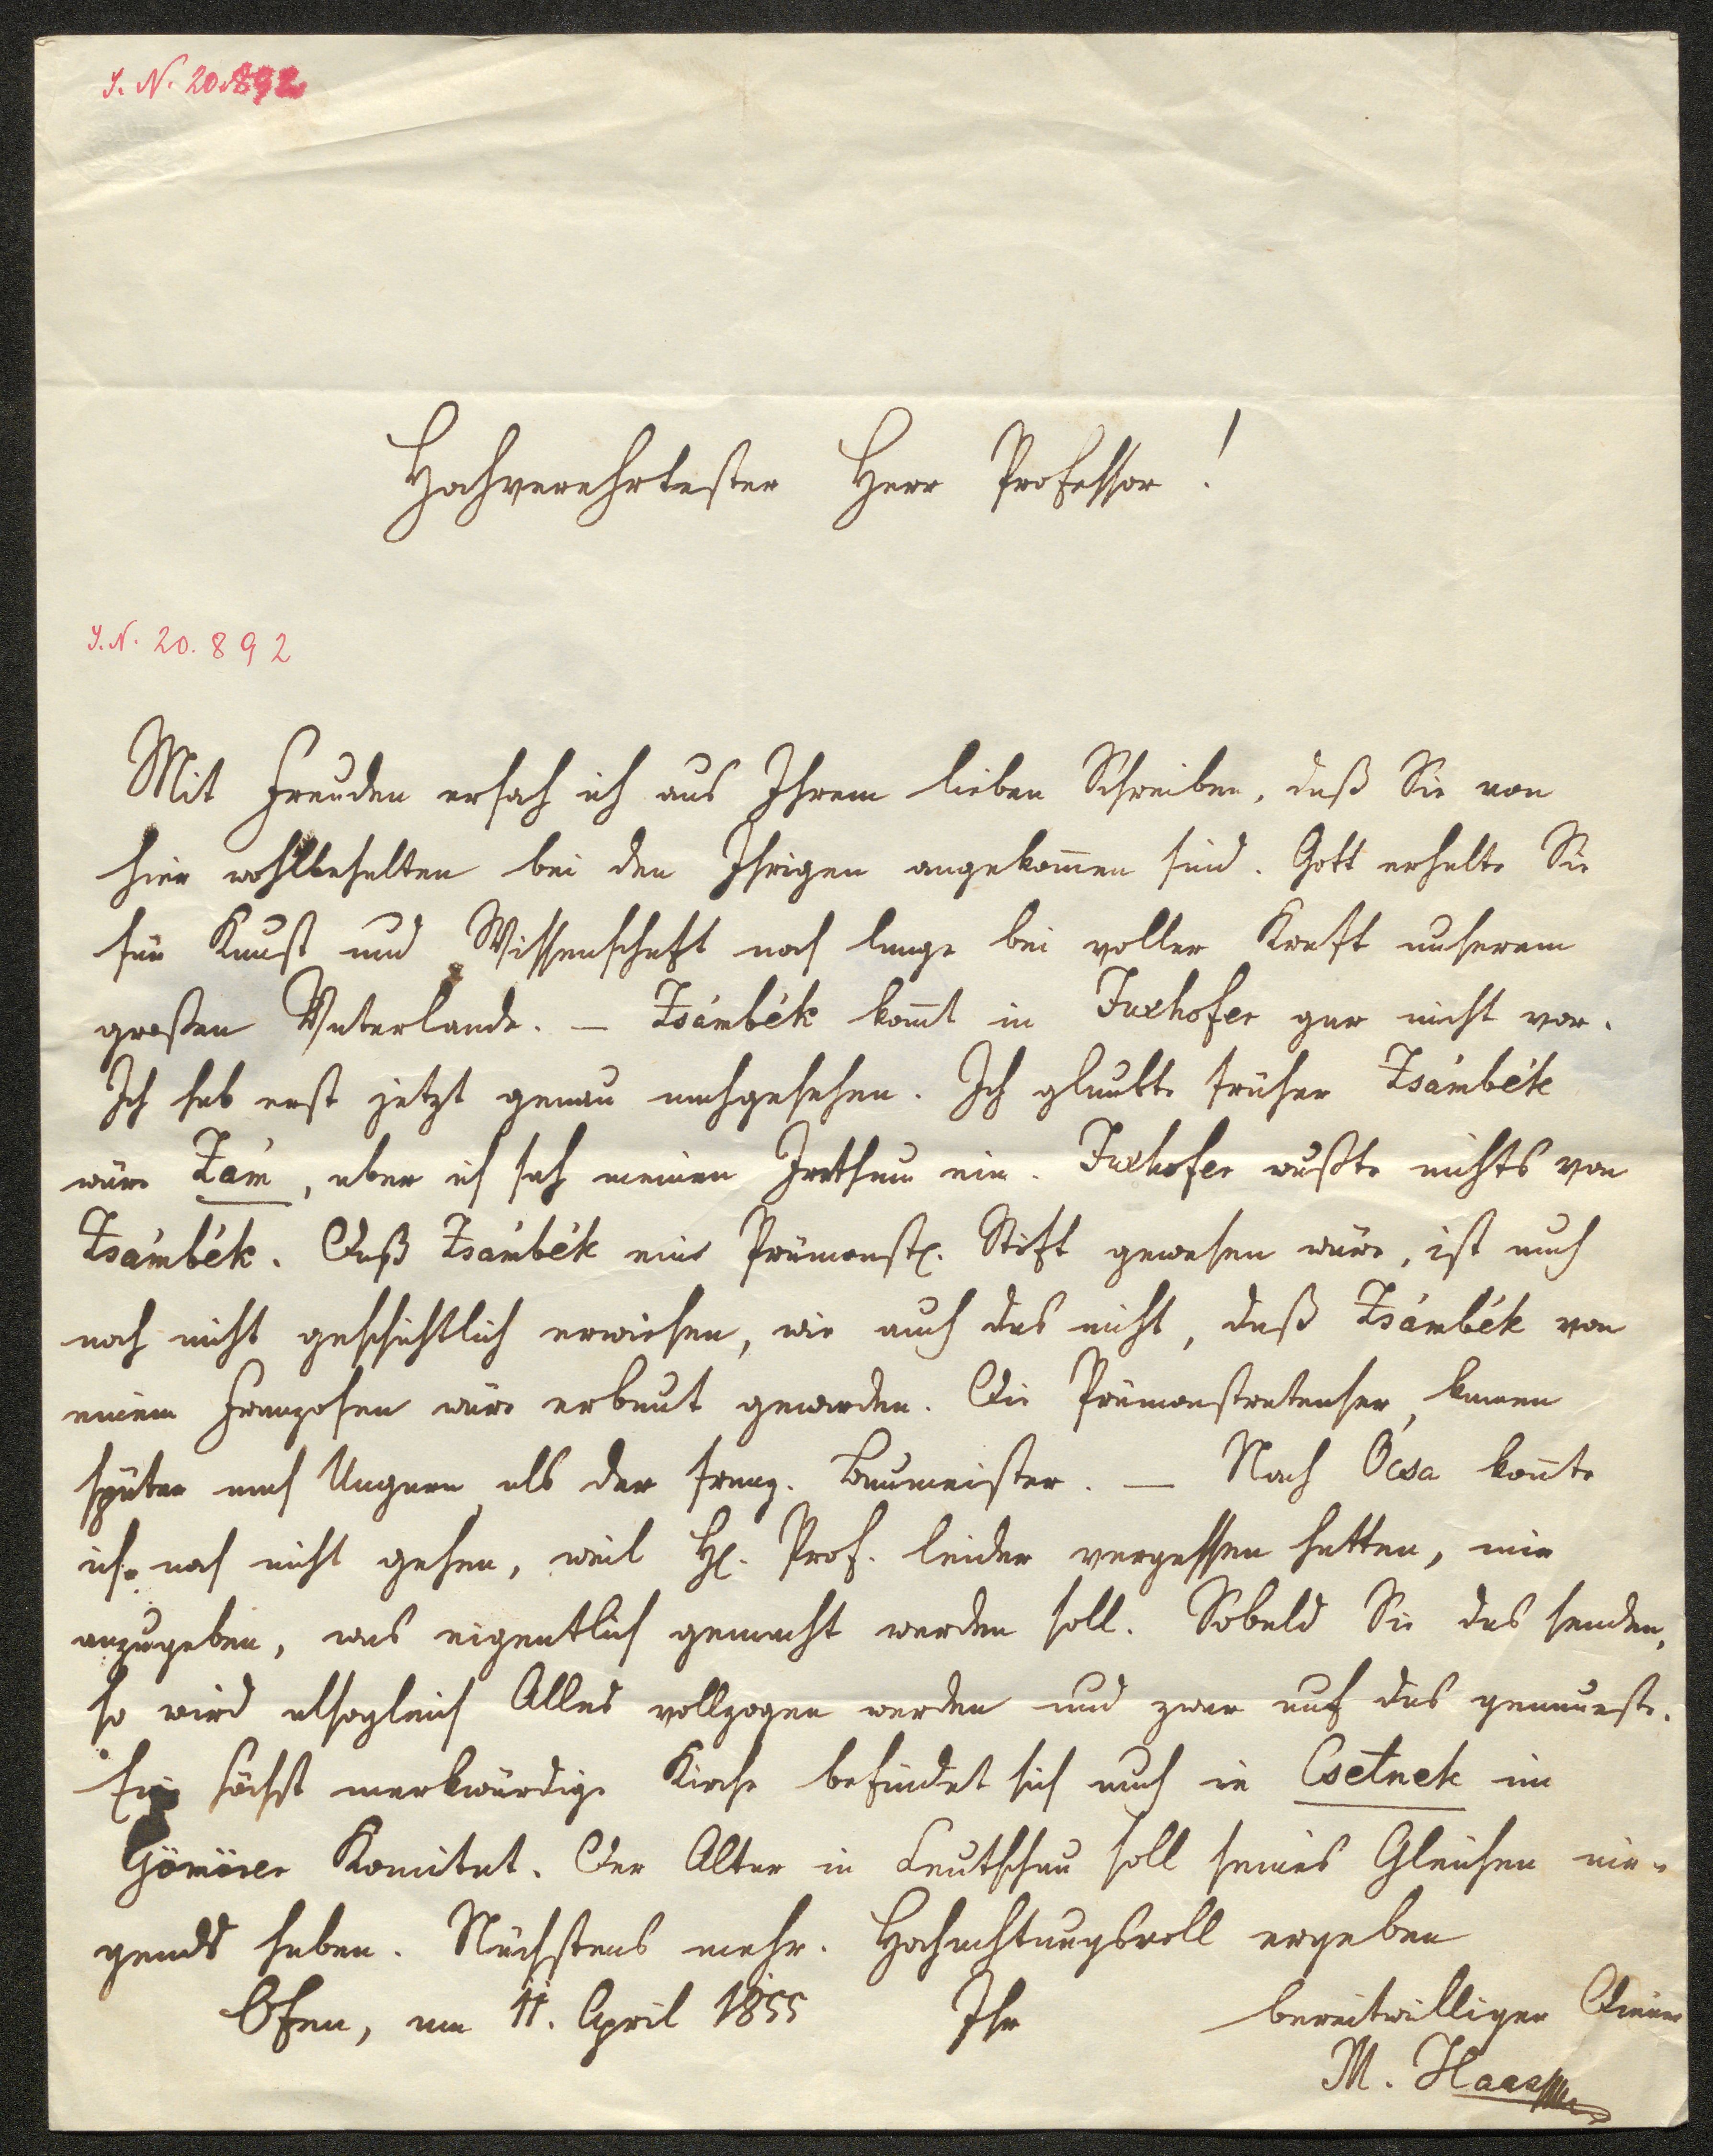 I. N. 20.892
Hochverehrtester Herr Professor!
I. N. 20.892
Mit Freuden ersah ich aus Ihrem lieben Schreiben, daß Sie von
hier wohlbehalten bei den Ihrigen angekom̅en sind. Gott erhalte Sie
für Kunst und Wissenschaft noch lange bei voller Kraft unserem
großen Vaterlande. – Zsámbék kom̅t in Fuxhofer gar nicht vor.
Ich hab erst jetzt genau nachgesehen. Ich glaubte früher Zsámbék
wäre Zám, aber ich sah meinen Irrthum ein. Fuxhofer wußte nichts von
Zsámbék. Daß Zsámbék eine Prämonstr. Stift gewesen wäre, ist auch
noch nicht geschichtlich erwiesen, wie auch das nicht, daß Zsámbék von
einem Franzosen wäre erbaut geworden. Die Prämonstratenser kamen
später nach Ungarn als der franz. Baumeister. – Nach Ócsa kon̅te
ich noch nicht gehen, weil H. Prof. leider vergessen hatten, mir
anzugeben, was eigentlich gemacht werden soll. Sobald Sie das senden,
so wird alsogleich Alles vollzogen werden und zwar auf das genaueste.
Eine höchst merkwürdige Kirche befindet sich auch in Csetnek im
Gömörer Komitat. Der Altar in Leutschau soll seines Gleichen nir-
gends haben. Nächstens mehr. Hochachtungsvoll ergeben
Ofen, am 11. April 1855 Ihr bereitwilliger Diener
M. Haas